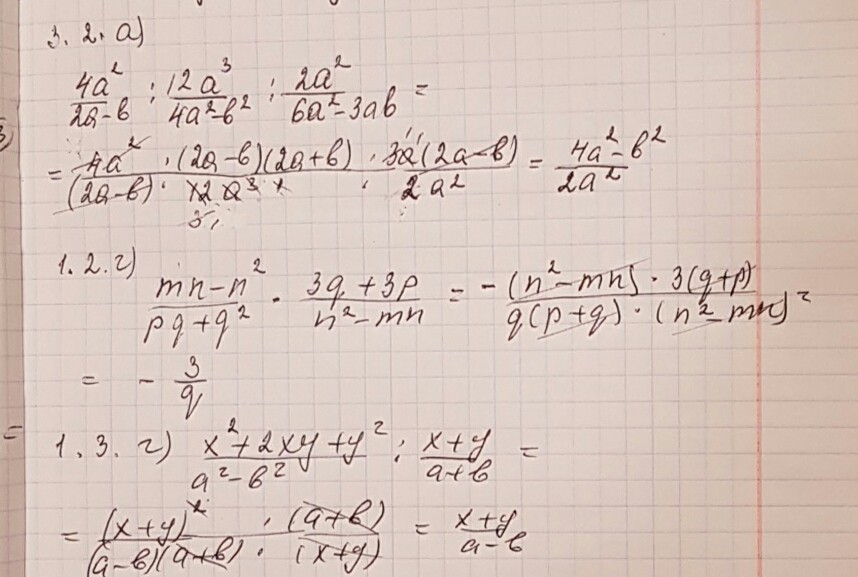 3. 2. а)
4a²/(2a-b) : 12a³/(4a²-b²) : 2a²/(6a²-3ab) =
= 4a² · (2a-b)(2a+b) · 3a(2a-b) / ((2a-b) · 12a³ · 2a²) = (4a²-b²)/(2a²)
3
1. 2. г) (mn-n²)/(pq+q²) · (3q+3p)/(n²-mn) = - (n²-mn) · 3(q+p) / (q(p+q) · (n²-mn)) =
= - 3/q
1. 3. г) (x²+2xy+y²)/(a²-b²) : (x+y)/(a+b) =
= (x+y)² · (a+b) / ((a-b)(a+b) · (x+y)) = (x+y)/(a-b)